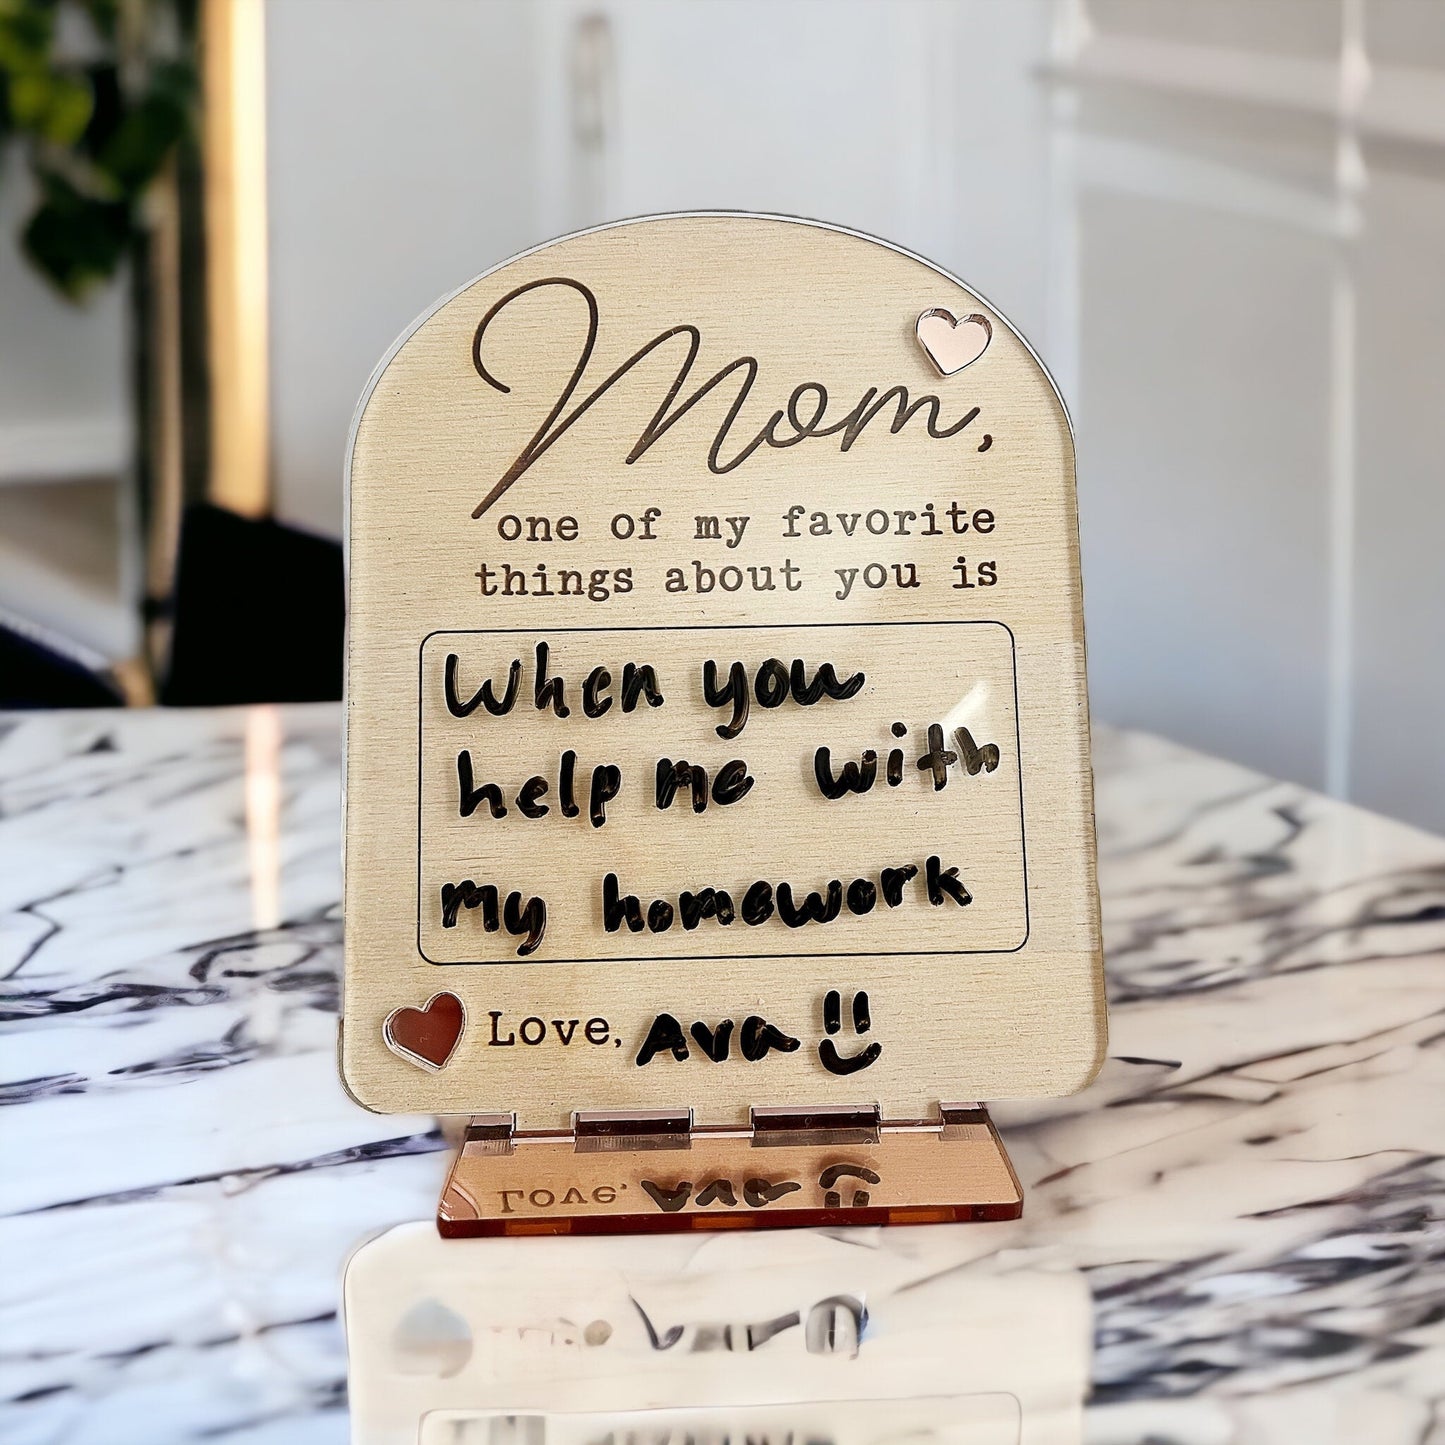 Mom,
one of my favorite
things about you is
When you
help me with
my homework
Love, Ava
Love, Ava